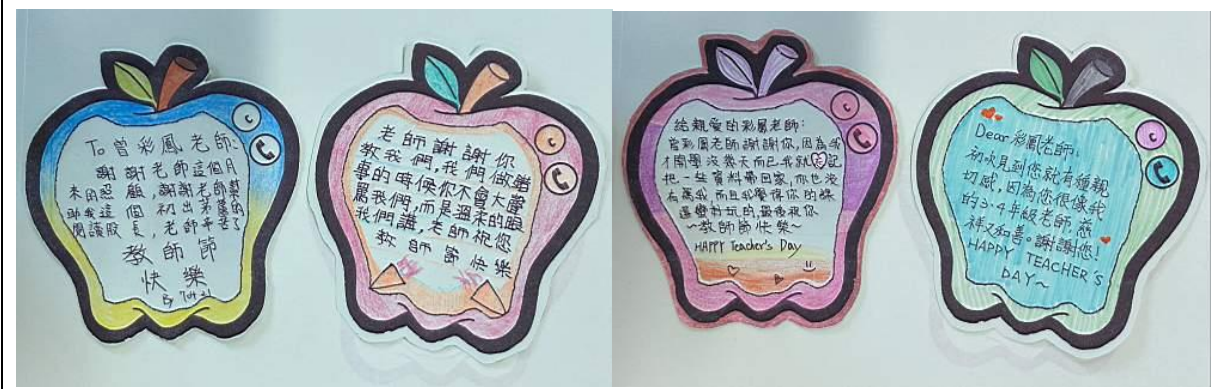 To 曾彩鳳老師:
謝謝老師這個月
來的照顧,謝謝老師幫
助我這個初出茅廬的
閱讀股長,老師辛苦了
教師節
快樂
老師謝謝你
教我們,我們做錯
事的時候你不會大聲
罵我們,而是溫柔的跟
我們講,老師祝您
教師節快樂
給親愛的彩鳳老師:
曾彩鳳老師謝謝你,因為我
才開學沒幾天而已我就忘記
把一些資料帶回家,你也沒
有罵我而且我覺得你的課
還蠻好玩的最後祝你
~教師節快樂~
HAPPY Teacher's Day
Dear 彩鳳老師:
初次見到您就有種親
切感,因為您很像我
的3、4年級老師,慈
祥又和善。謝謝您!
HAPPY TEACHER'S
DAY~